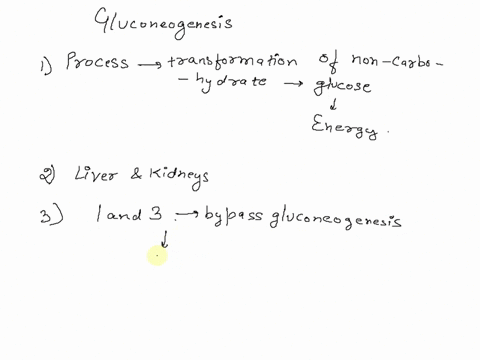 Gluconeogenesis
1) Process → transformation of non-carbo-
-hydrate → glucose
↓
Energy.
2) Liver & Kidneys
3) 1 and 3 → bypass gluconeogenesis
↓